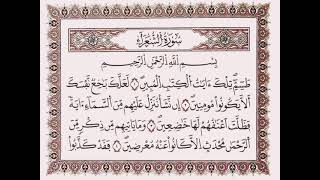 سُورَةُ الشُّعَرَاءِ
بِسْمِ اللَّهِ الرَّحْمَٰنِ الرَّحِيمِ
طسٓمٓ ۝ تِلْكَ ءَايَٰتُ ٱلْكِتَٰبِ ٱلْمُبِينِ ۝ لَعَلَّكَ بَٰخِعٌ نَّفْسَكَ
أَلَّا يَكُونُوا۟ مُؤْمِنِينَ ۝ إِن نَّشَأْ نُنَزِّلْ عَلَيْهِم مِّنَ ٱلسَّمَآءِ ءَايَةً
فَظَلَّتْ أَعْنَٰقُهُمْ لَهَا خَٰضِعِينَ ۝ وَمَا يَأْتِيهِم مِّن ذِكْرٍ مِّنَ
ٱلرَّحْمَٰنِ مُحْدَثٍ إِلَّا كَانُوا۟ عَنْهُ مُعْرِضِينَ ۝ فَقَدْ كَذَّبُوا۟